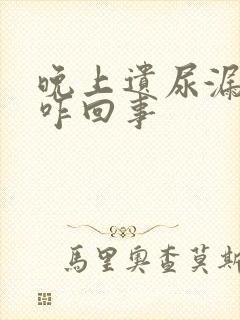 晚上遗尿漏
咋回事
馬里奧查莫斯